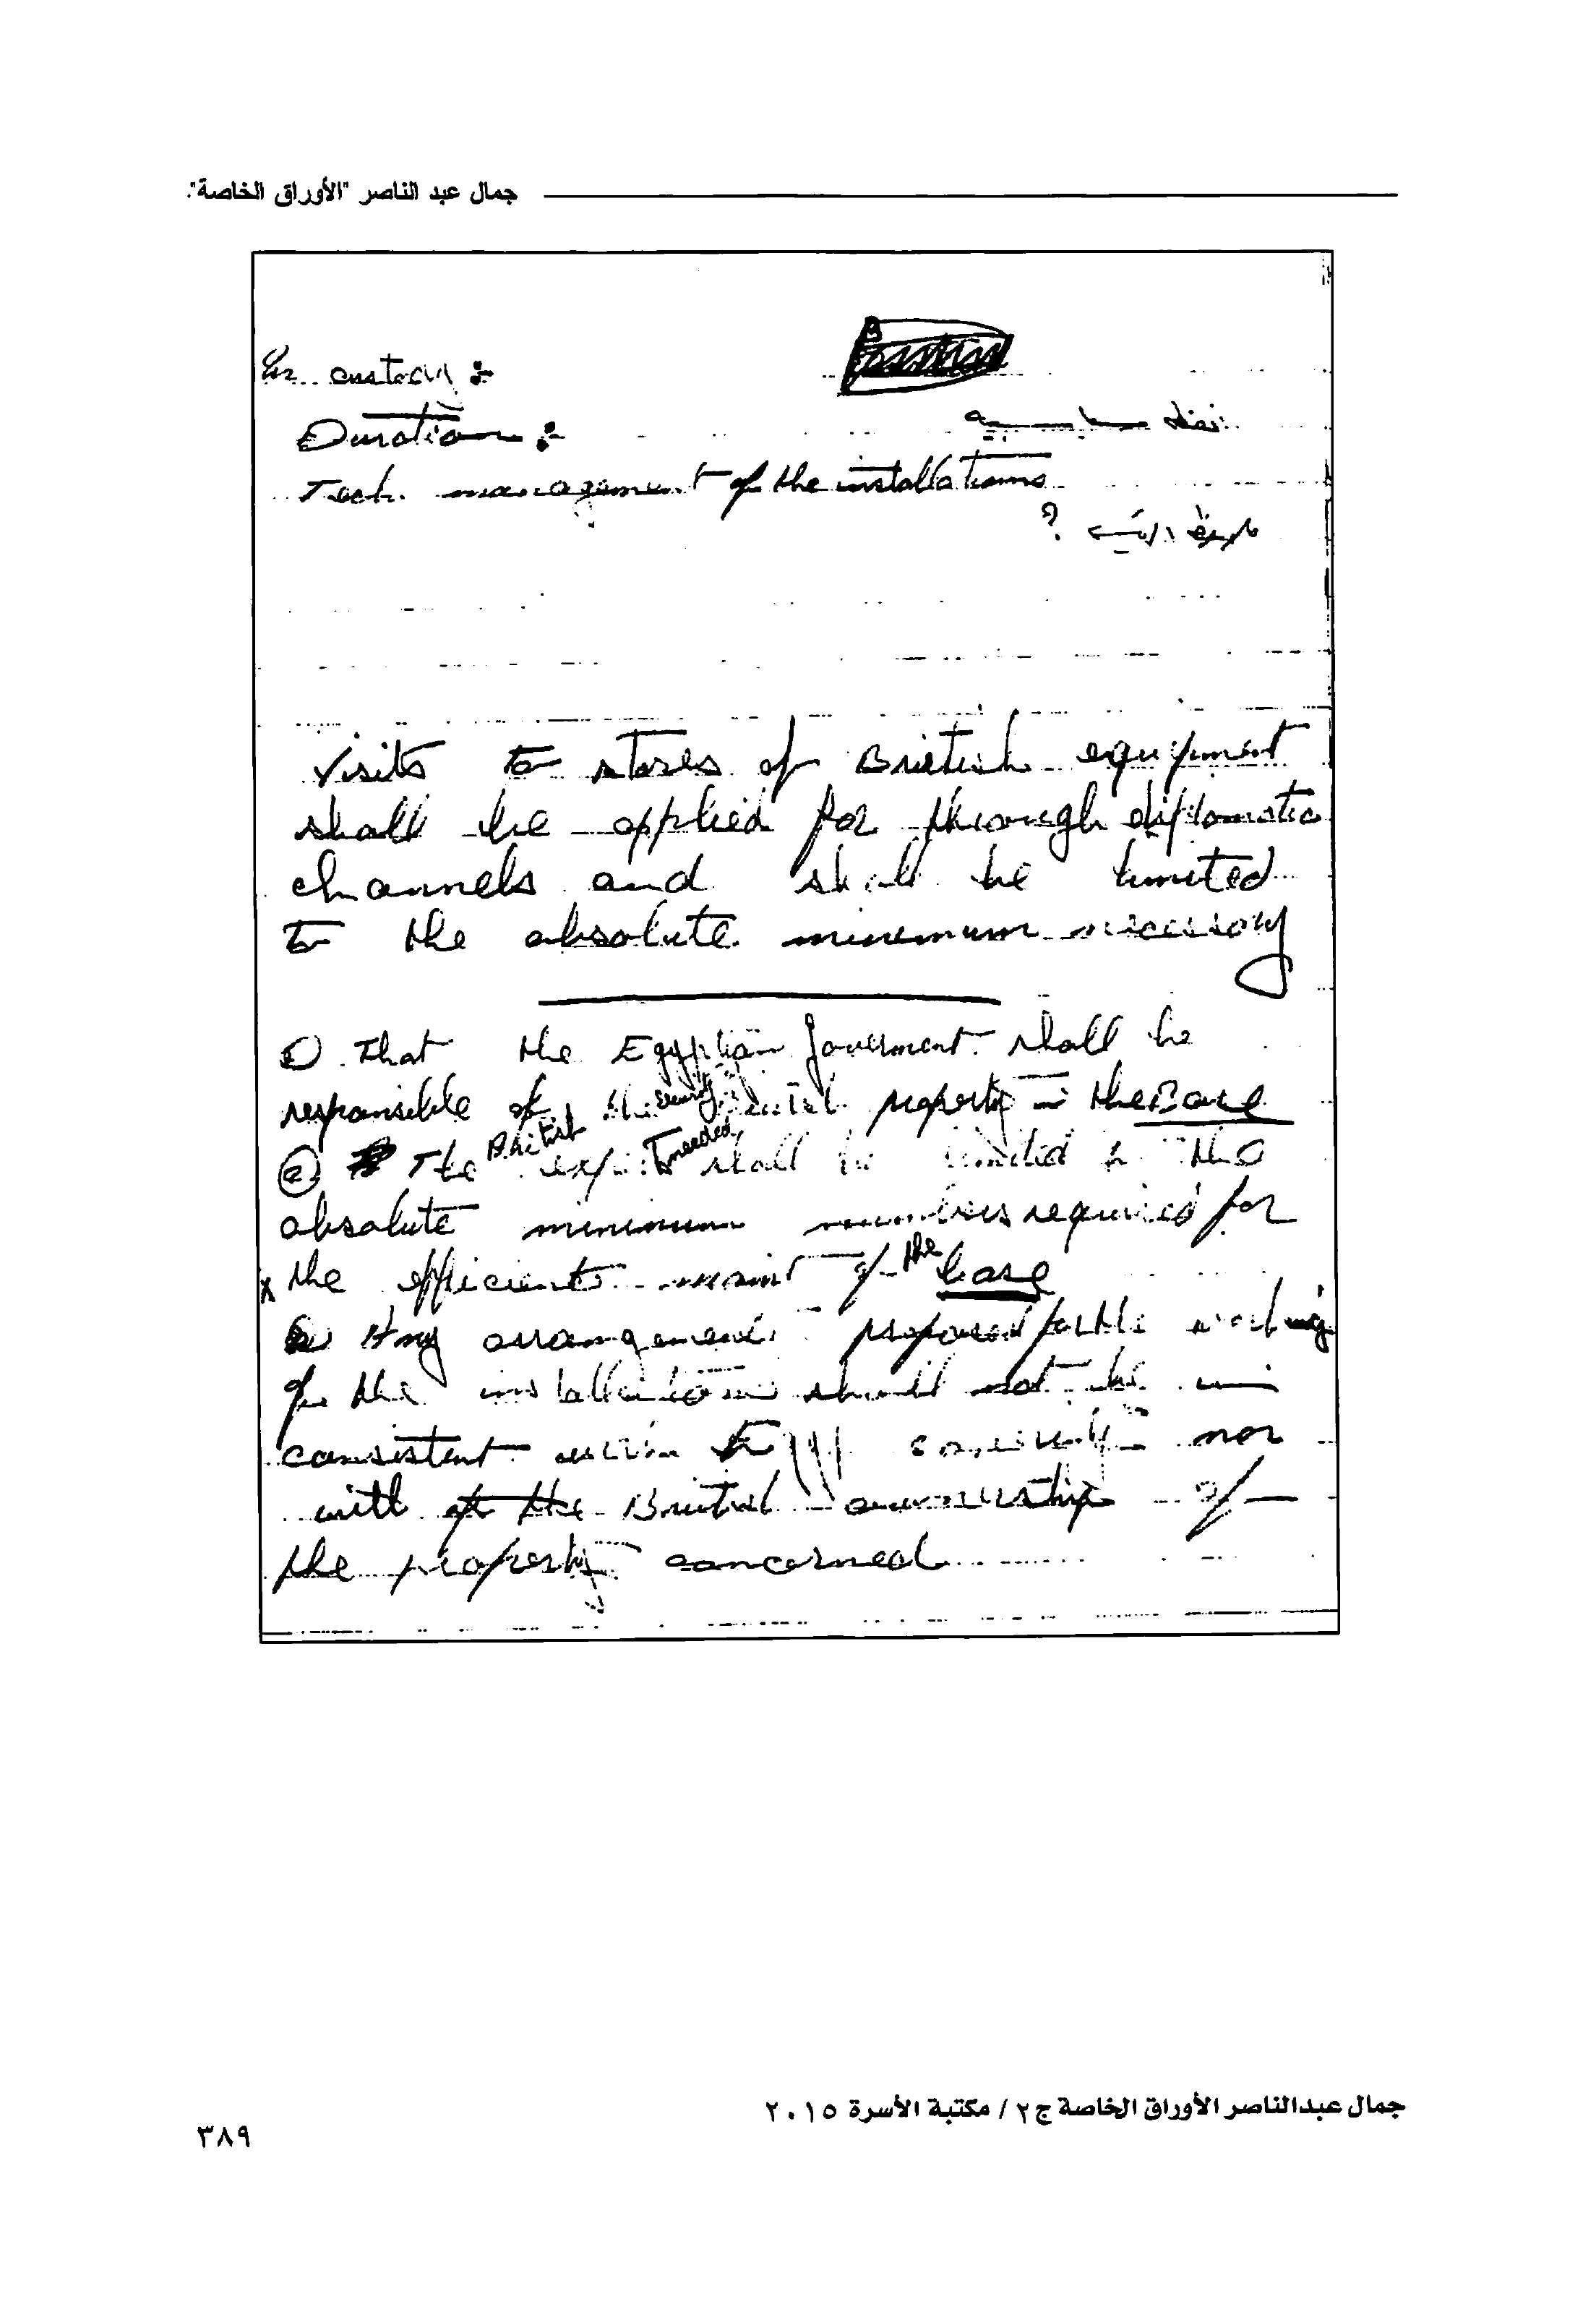 جمال عبد الناصر "الأوراق الخاصة".
In custody :-
Duration :-
Tech. management of the installations
?
Visits to stores of British equipment
shall be applied for through diplomatic
channels and shall be limited
to the absolute minimum nicessary
① That the Egyptian Government shall be
responsible of the security British property in the Base
② The British experts needed shall be limited to the
absolute minimum numbers required for
x the efficient maint of the base
Any arrangement proposed for the working
of the installations should not be in
consistent with Egy. nor
with the British ownership of
the property concerned
جمال عبدالناصر الأوراق الخاصة ج٢ / مكتبة الأسرة ٢٠١٥
٣٨٩